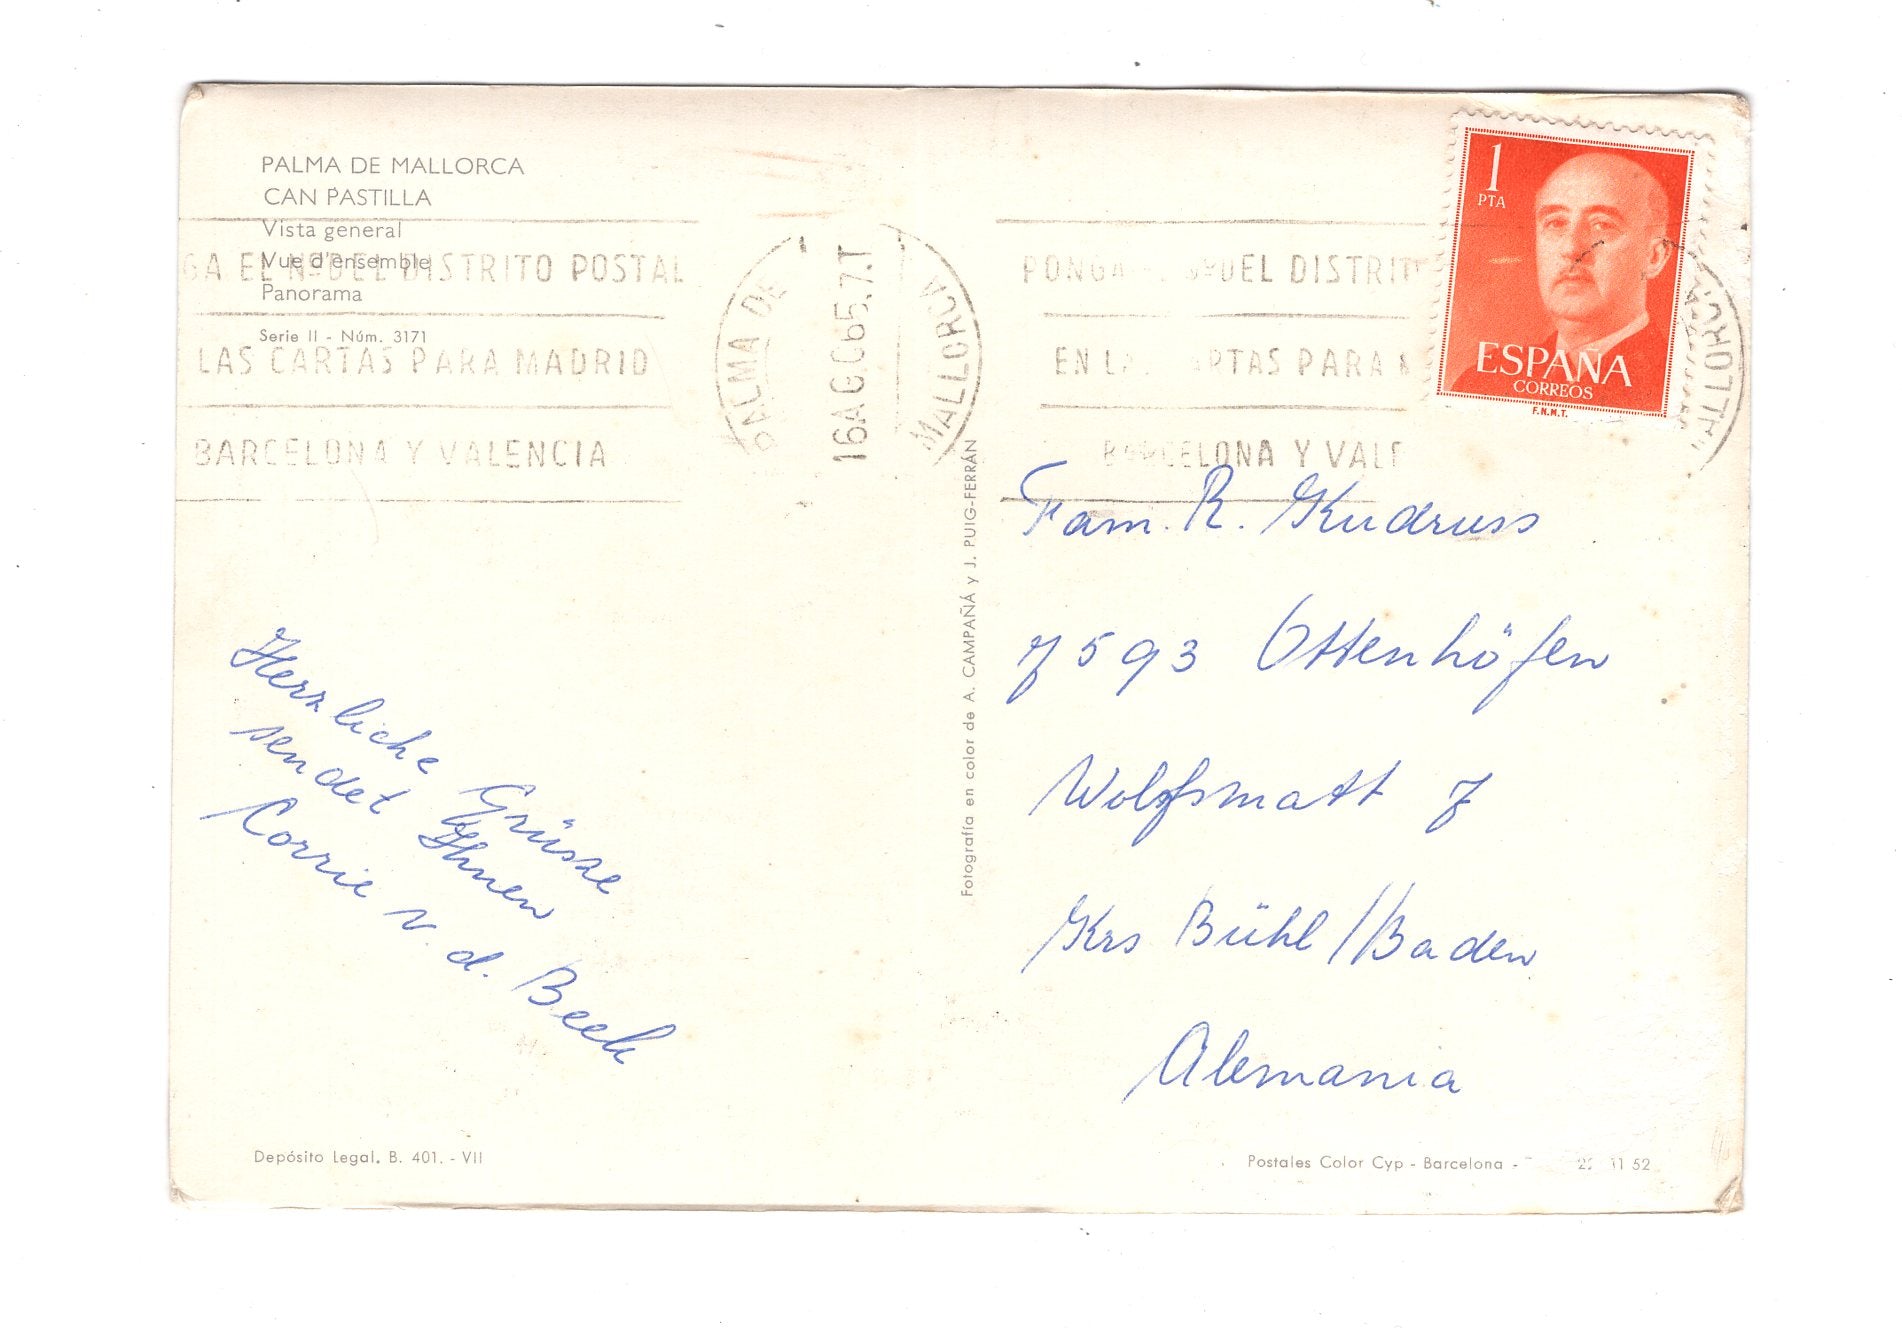 PALMA DE MALLORCA
CAN PASTILLA
Vista general
Vue d'ensemble
Panorama
Serie II - Núm. 3171
GA EL Nº DEL DISTRITO POSTAL
LAS CARTAS PARA MADRID
BARCELONA Y VALENCIA
PALMA DE MALLORCA
16 AGO 65.7.T
PONGA EL Nº DEL DISTRIT
EN LAS CARTAS PARA
BARCELONA Y VALE
MALLORCA
1
PTA
ESPAÑA
CORREOS
F.N.M.T.
Herrliche Grüsse
sendet Ihnen
Corrie v. d. Beek
Fotografía en color de A. CAMPAÑÁ y J. PUIG-FERRÁN
Fam. R. Knudruss
7593 Ottenhöfen
Wolfsmatt 7
Krs Bühl/Baden
Alemania
Depósito Legal. B. 401. - VII
Postales Color Cyp - Barcelona - 11 52